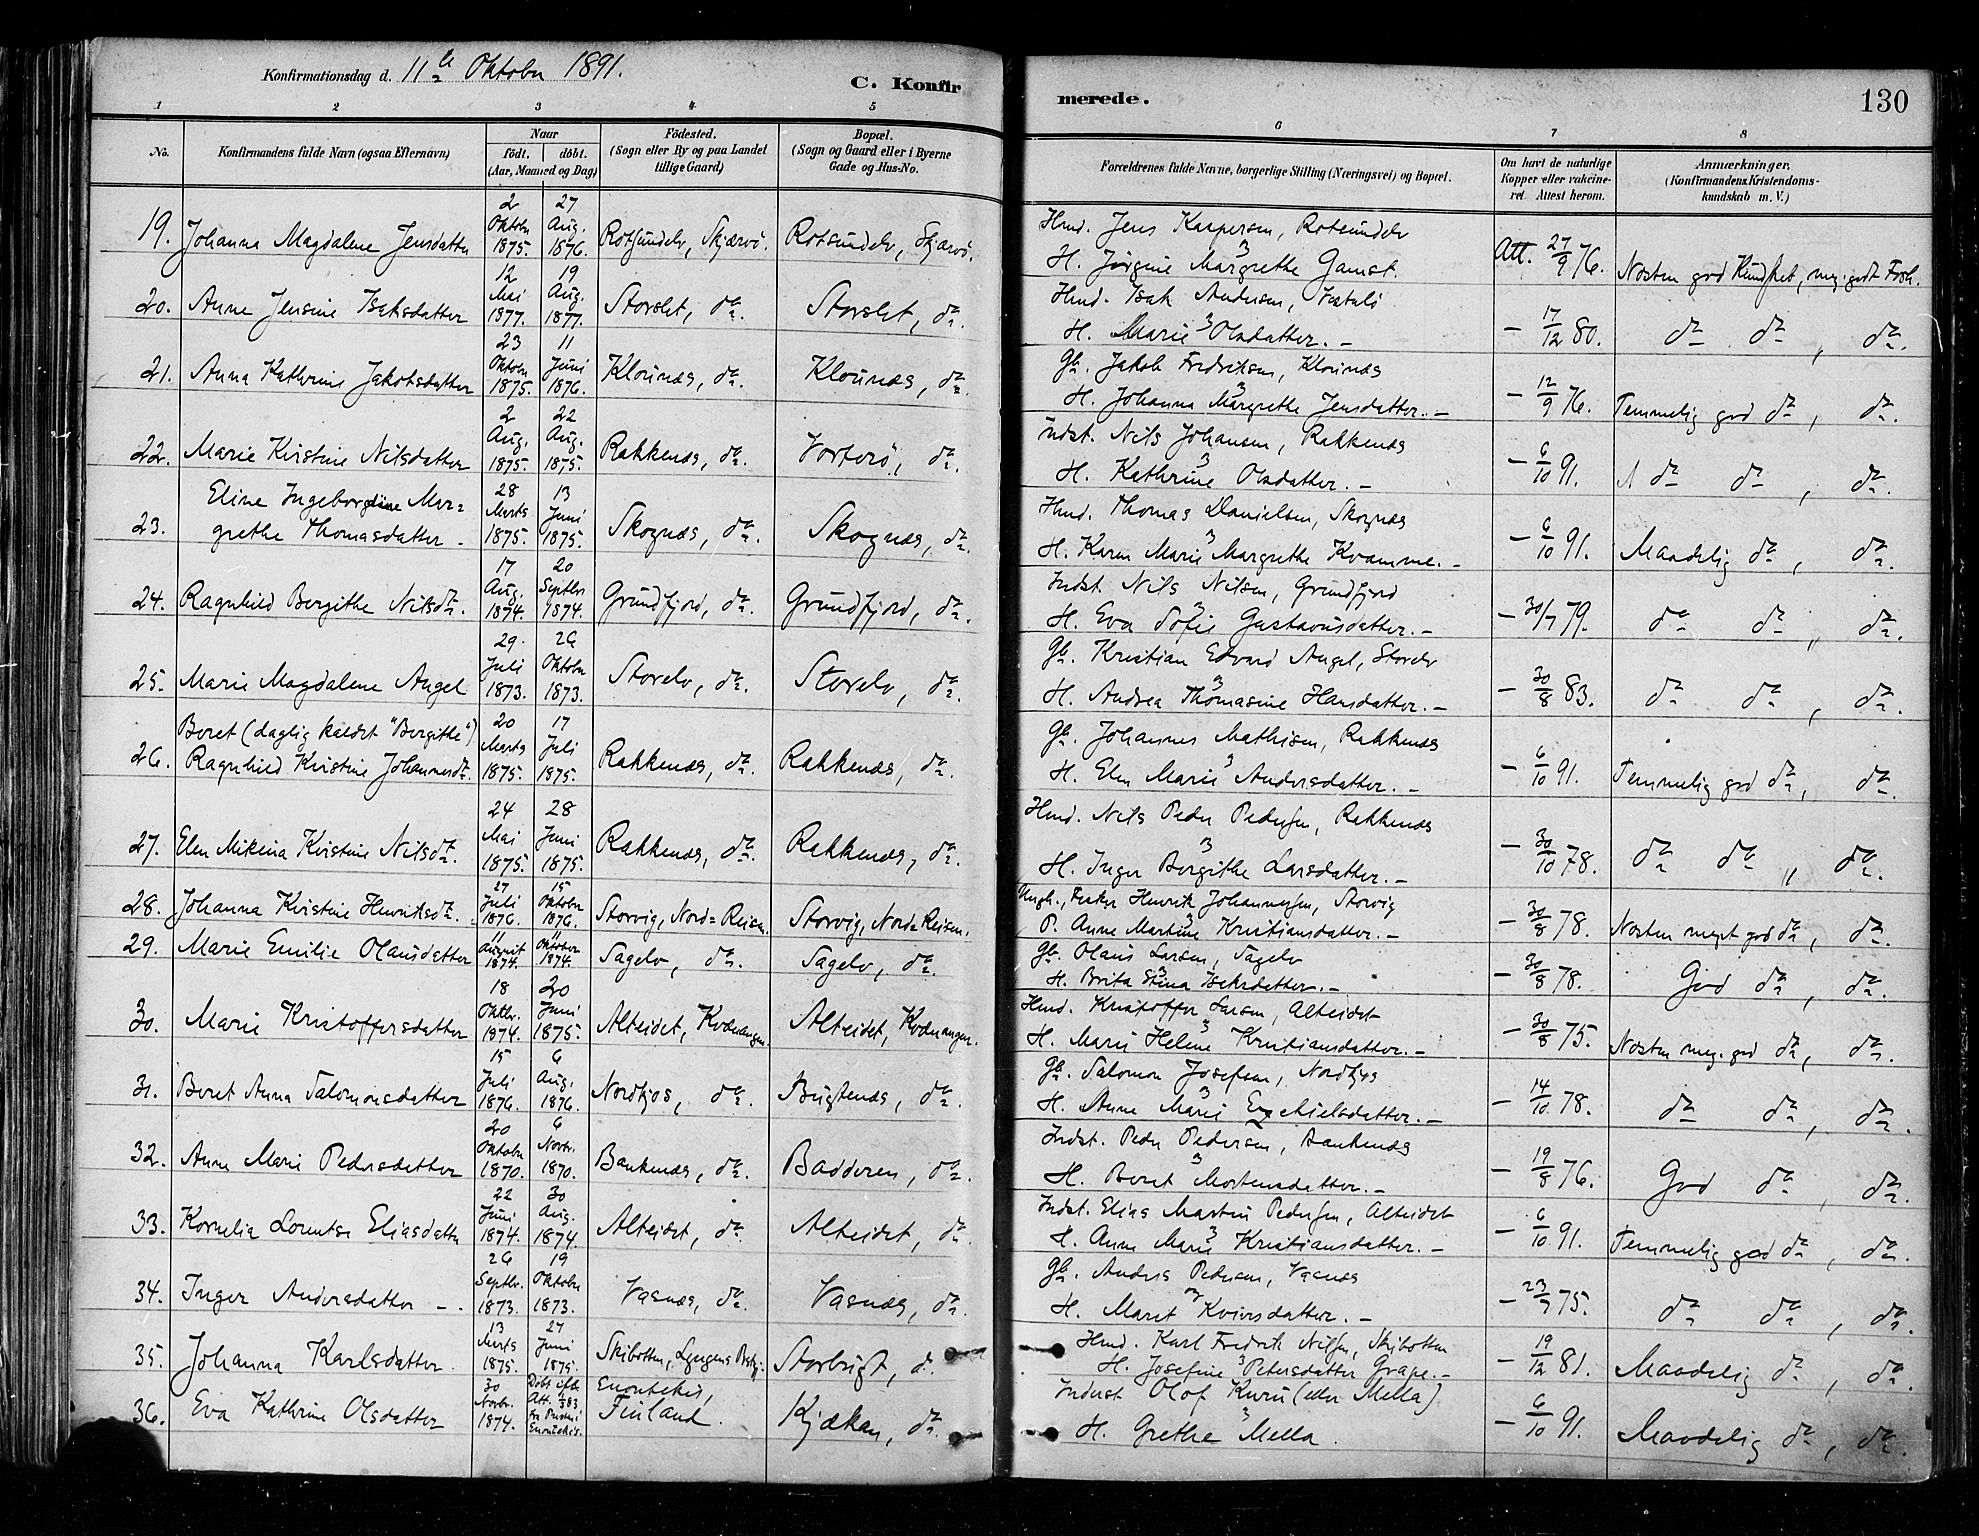 Konfirmationsdag d. 11te Oktober 1891.
C. Konfirmerede.
130
1 2 3 4 5 6 7 8
No.
Konfirmandens fulde Navn (ogsaa Efternavn)
Naar
födt. döbt.
(Aar, Maaned og Dag)
Födested.
(Sogn eller By og paa Landet
tillige Gaard)
Bopæl.
(Sogn og Gaard eller i Byerne
Gade og Hus-No.
Forældrenes fulde Navne, borgerlige Stilling (Næringsvei) og Bopæl.
Om havt de naturlige
Kopper eller vakcine-
ret Attest herom.
Anmærkninger,
(Konfirmandens Kristendoms-
kundskab m. V.)
19. Johanna Magdalene Jensdatter 2 Oktobr 1875. 27 Aug. 1876. Rotsundelv, Skjærvö. Rotsundelv, Skjærvö.
Hmd. Jens Kaspersen, Rotsundelv
H. Jørgine Margrethe Gamst. Att. 27/9 76. Næsten god Kundskab, meg. godt Forh.
20. Anne Jensine Isaksdatter 12 Mai 1877. 19 Aug. 1877. Storslet, do. Storslet, do.
Hmd. Isak Andersen,
H. Marie Olsdatter. – – 17/12 80. do do, do.
21. Anna Kathrine Jakobsdatter 23 Oktobr 1875. 11 Juni 1876. Klounæs, do. Klounæs, do.
Gb. Jakob Fredriksen, Klounæs
H. Johanna Margrethe Jensdatter. – – 12/9 76. Temmelig god do, do.
22. Marie Kristine Nilsdatter 2 Aug. 1875. 22 Aug. 1875. Rakkenæs, do. Vorterö, do.
Indst. Nils Johansen, Rakkenæs
H. Kathrine Olsdatter. – – 6/10 91. do do, do.
23. Eline Ingeborgdine Mar=
grethe Thomasdatter – 28 Marts 1875. 13 Juni 1875. Skognæs, do. Skognæs, do.
Hmd. Thomas Danielsen, Skognæs
H. Karen Marie Margrethe Kvamme. – – 6/10 91. Maadelig do, do.
24. Ragnhild Bergithe Nilsdtr. 17 Aug. 1874. 20 Septbr. 1874. Grundfjord, do. Grundfjord, do.
Indst. Nils Nilsen, Grundfjord
H. Eva Sofie Gustavusdatter. – – 30/7 79. do do, do.
25. Marie Magdalene Angel 29 Juli 1873. 26 Oktobr 1873. Storelv, do. Storelv, do.
Gb. Kristian Edvard Angel, Storelv
H. Andrea Thomasine Hansdatter. – – 30/8 83. do do, do.
26. Beret (daglig kaldet "Bergithe")
Ragnhild Kristine Johannesdtr. 20 Marts 1875. 17 Juli 1875. Rakkenæs, do. Rakkenæs, do.
Gb. Johannes Mathisen, Rakkenæs
H. Elen Marie Andersdatter. – – 6/10 91. Temmelig god do, do.
27. Elen Mikena Kristine Nilsdtr. 24 Mai 1875. 28 Juni 1875. Rakkenæs, do. Rakkenæs, do.
Hmd. Nils Peder Pedersen, Rakkenæs
H. Inger Bergithe Larsdatter. – – 30/10 78. do do, do.
28. Johanna Kristine Henriksdtr. 27 Juli 1876. 15 Oktobr 1876. Storvig, Nord=Reisen. Storvig, Nord=Reisen.
Ungk., Fisker Henrik Johannesen, Storvig
P. Anne Martine Kristiansdatter. – – 30/8 78. Næsten meget god do, do.
29. Marie Emilie Olausdatter 11 August 1874. 11 Oktober 1874. Sagelv, do. Sagelv, do.
Gb. Olaus Larsen, Sagelv
H. Brita Stina Isaksdatter. – – 30/8 78. God do, do.
30. Marie Kristoffersdatter 18 Oktbr. 1874. 20 Juni 1875. Alteidet, Kvænangen. Alteidet, Kvænangen.
Hmd. Kristoffer Larsen, Alteidet
H. Marie Helene Kristiansdatter. – – 30/8 75. Næsten meg. god do, do.
31. Beret Anna Salomonsdatter 15 Juli 1876. 6 Aug. 1876. Nordkjos, do. Bugtenæs, do.
Gb. Salomon Josefsen, Nordkjos
H. Anne Marie Ezekielsdatter. – – 14/10 78. do do, do.
32. Anne Marie Pedersdatter 20 Oktober 1870. 6 Novbr. 1870. Bankenæs, do. Badderen, do.
Indst. Peder Pedersen, Bankenæs
H. Beret Mortensdatter. – – 19/8 76. God do, do.
33. Kornelia Lorentse Eliasdatter 22 Juni 1874. 30 Aug. 1874. Alteidet, do. Alteidet, do.
Indst. Elias Martin Pedersen, Alteidet
H. Anne Marie Kristiansdatter. – – 6/10 91. Temmelig god do, do.
34. Inger Andersdatter – 26 Septbr. 1873. 19 Oktobr 1873. Vasnæs, do. Vasnæs, do.
Gb. Anders Pedersen, Vasnæs
H. Maret Kvivsdatter. – – 23/7 75. do do, do.
35. Johanna Karlsdatter. 13 Marts 1875. 27 Juni 1875. Skibotten, Lyngens Prstgj. Storbugt, do.
Hmd. Karl Fredrik Nilsen, Skibotten
H. Josefine Petersdatter Grape. – – 19/12 81. Maadelig do, do.
36. Eva Kathrine Olsdatter 30 Novbr. 1874. Döbt ifl. Att. fra Prsten i Enontekis. Enontekis, Finland. Kjækan, do.
Inderst Olof Kuru (eller Mella)
H. Grethe Mella. – 6/10 91. Maadelig do, do.